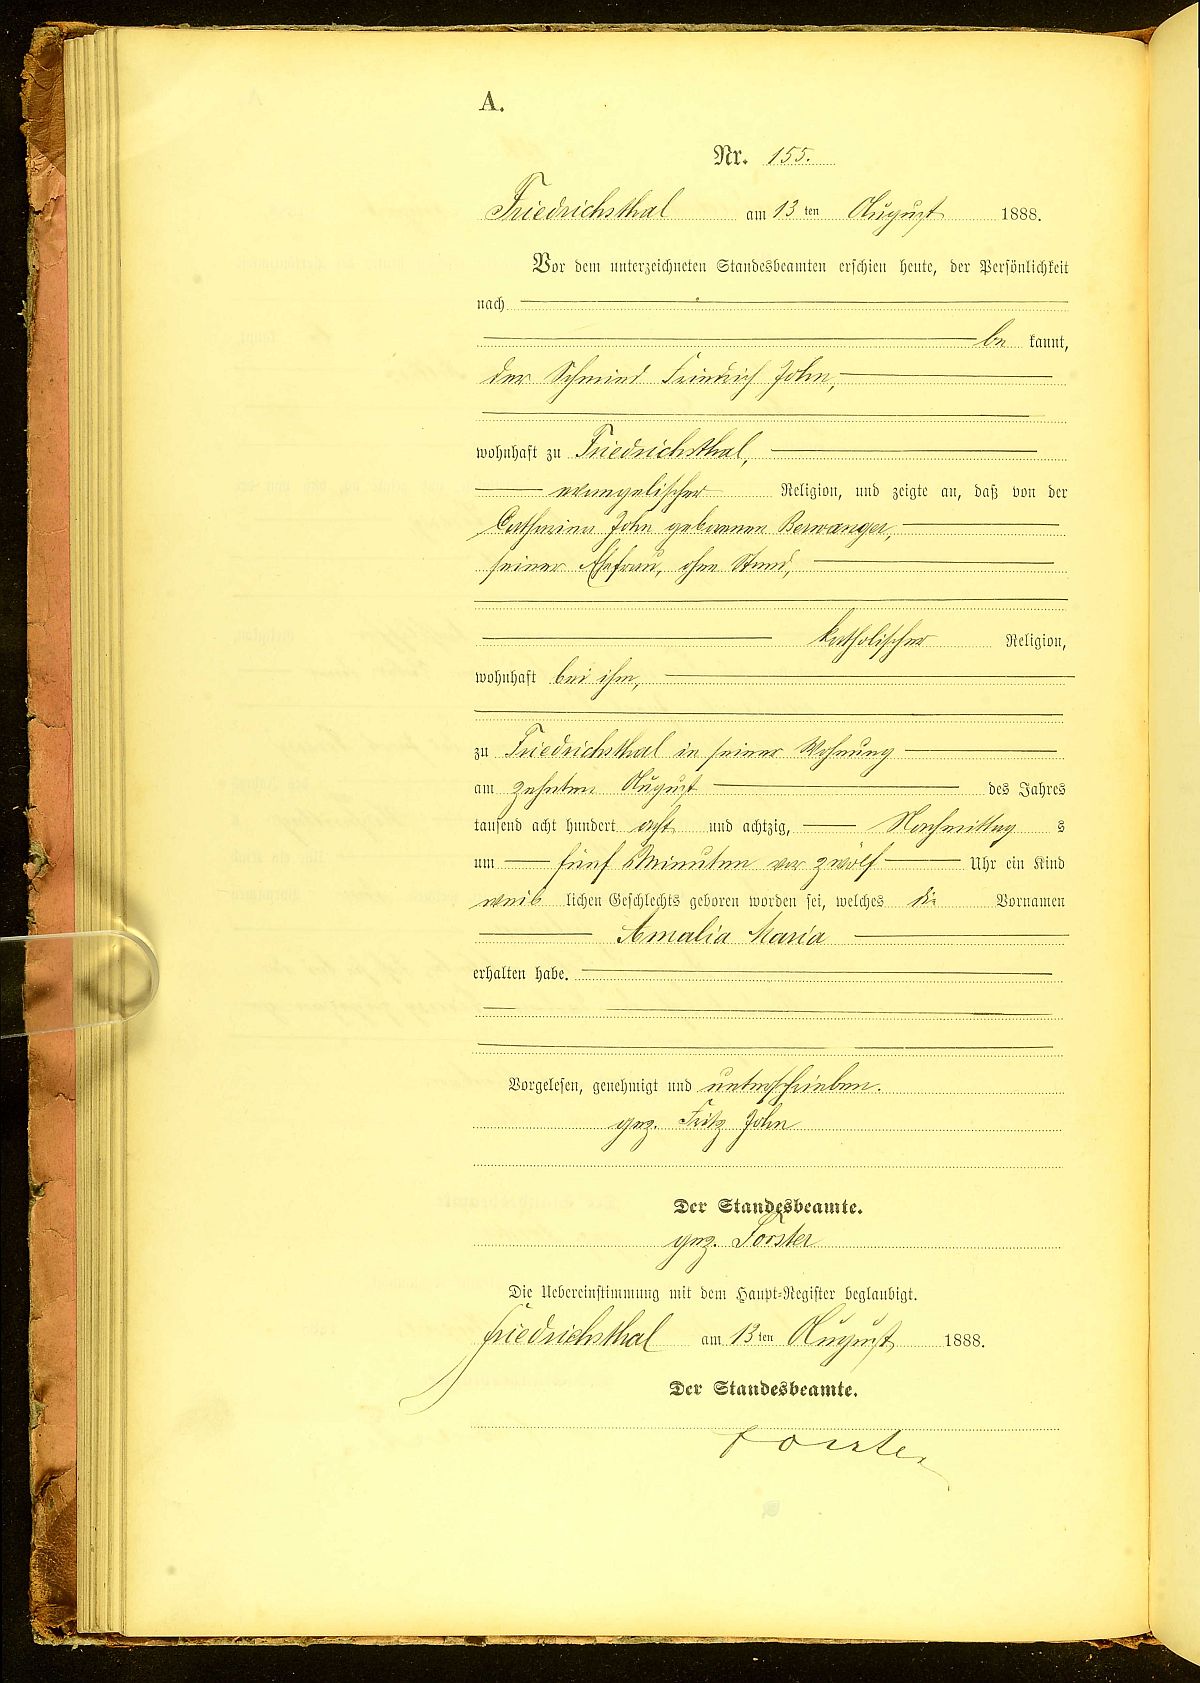 A.
Nr. 155.
Friedrichsthal am 13ten August 1888.
Vor dem unterzeichneten Standesbeamten erschien heute, der Persönlichkeit
nach
be kannt,
der Schmied Friedrich John,
wohnhaft zu Friedrichsthal,
evangelischer Religion, und zeigte an, daß von der
Catharina John geborenen Berwanger,
seiner Ehefrau, ohne Stand,
katholischer Religion,
wohnhaft bei ihm,
zu Friedrichsthal in seiner Wohnung
am zehnten August des Jahres
tausend acht hundert acht und achtzig, Nachmittag s
um fünf Minuten vor zwölf Uhr ein Kind
weib lichen Geschlechts geboren worden sei, welches die Vornamen
Amalia Maria
erhalten habe.
Vorgelesen, genehmigt und unterschrieben.
gez. Fritz John
Der Standesbeamte.
gez. Forster
Die Uebereinstimmung mit dem Haupt-Register beglaubigt.
Friedrichsthal am 13ten August 1888.
Der Standesbeamte.
Forster